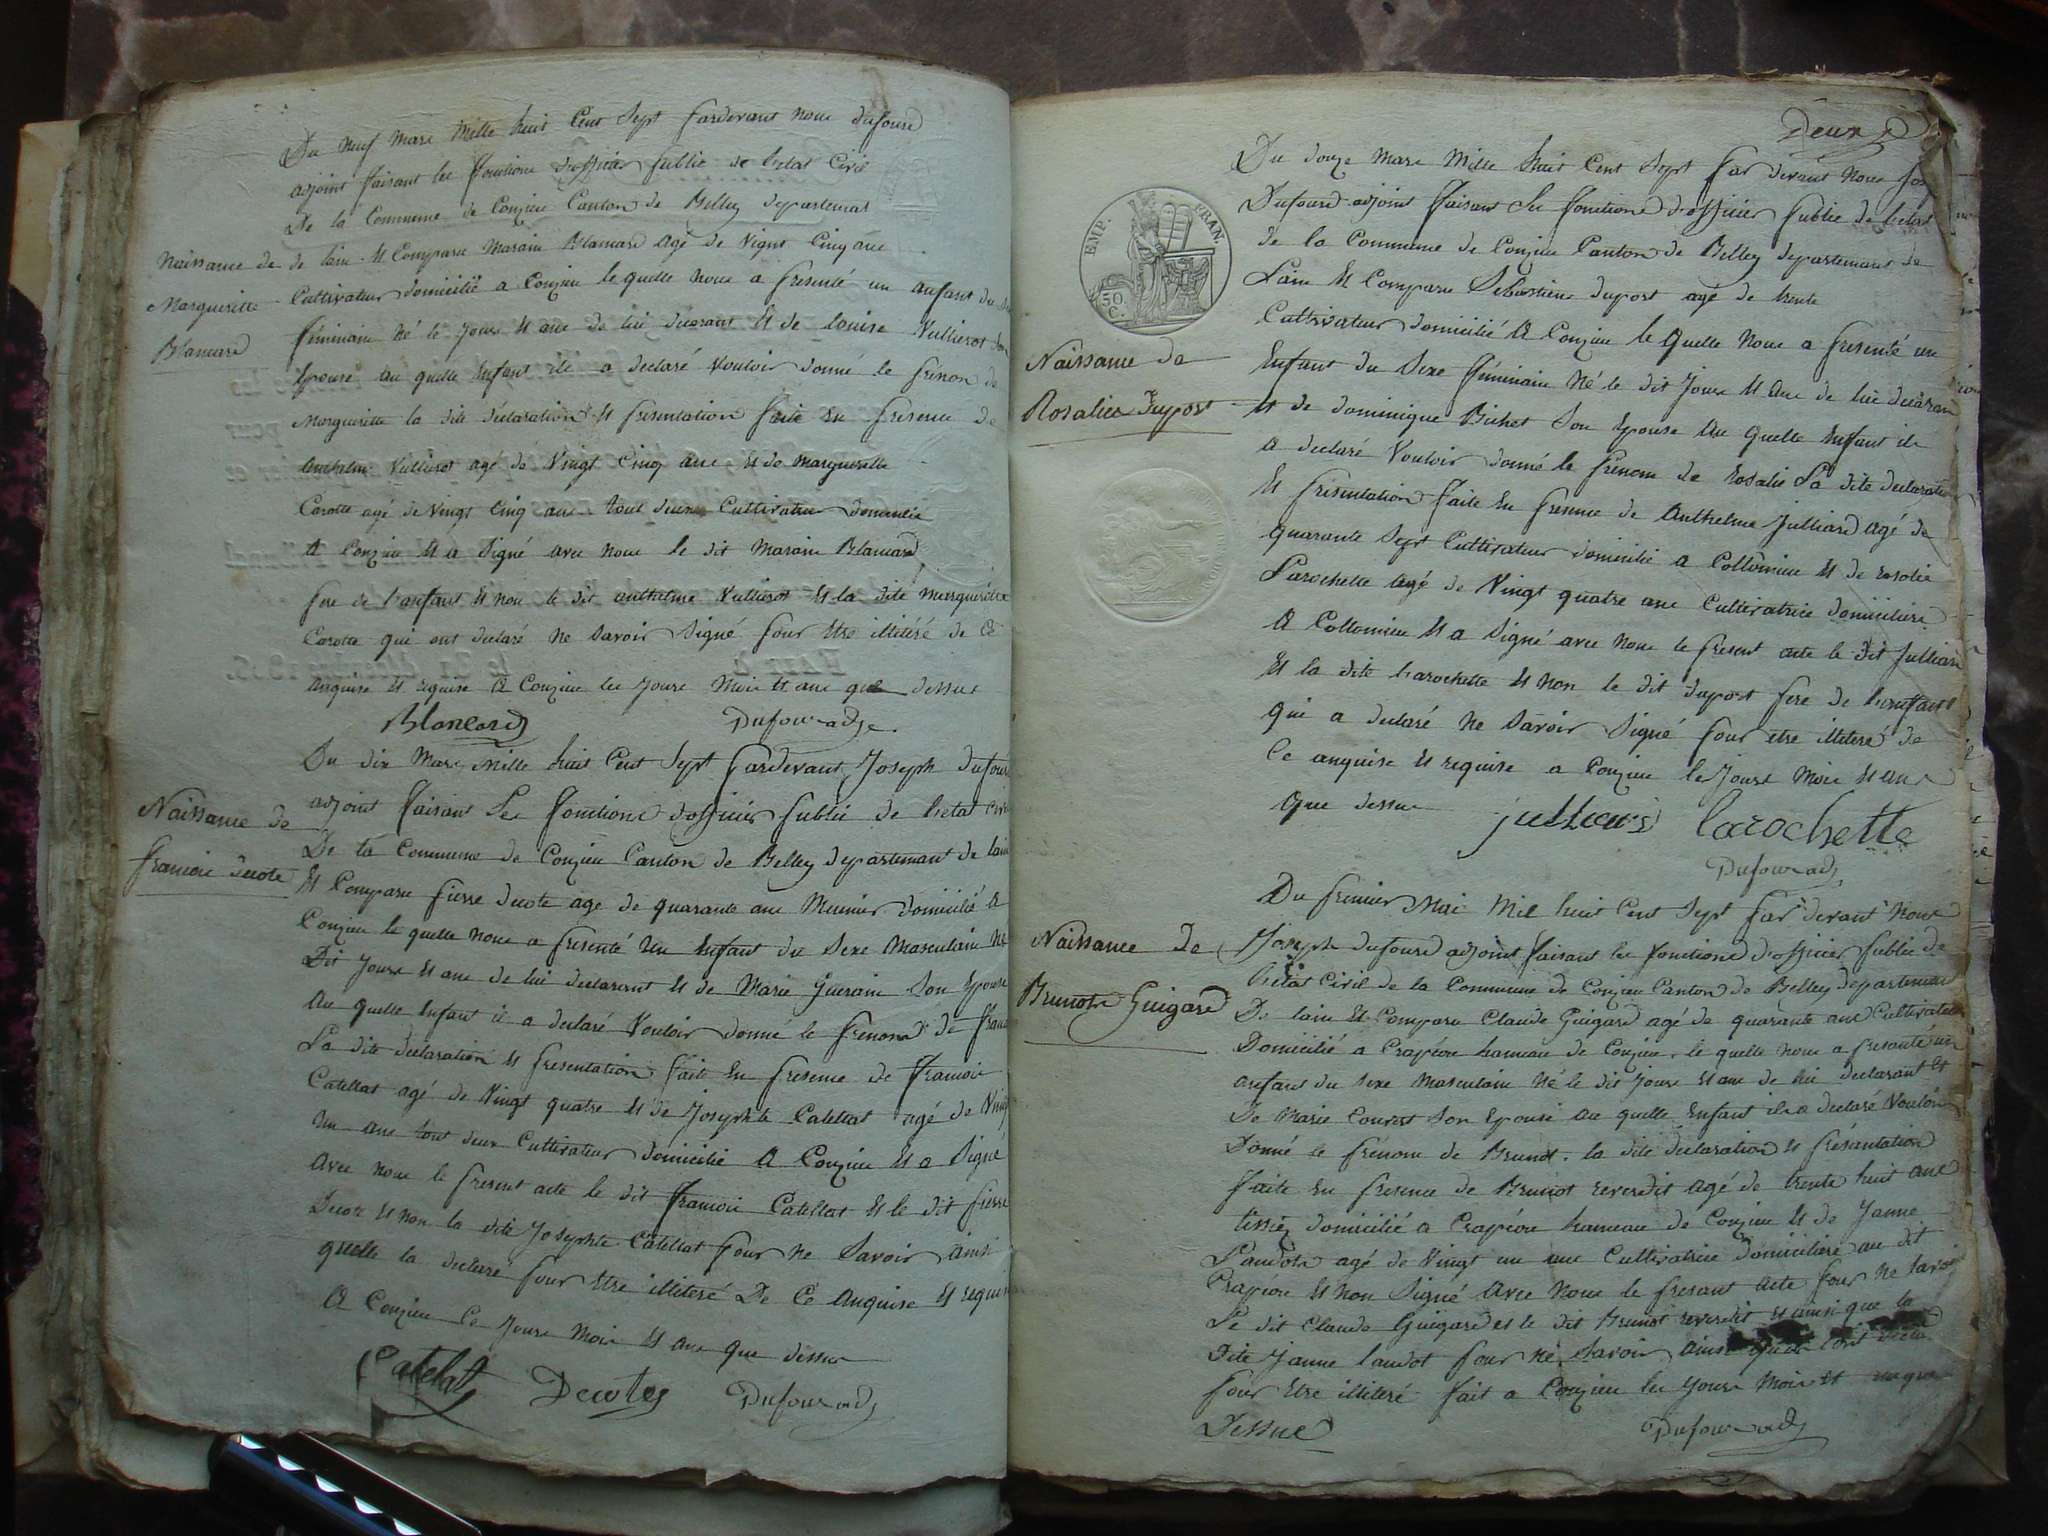 Du neuf mars mille huit Cent Sept pardevant nous dufourd
adjoint faisant les fonctions d'officier public de letat Civil
De la Commune de Conzieu Canton de Belley departemat
Naissance de
Margueritte
Blancard
de lain Et Comparu Marain Blancard agé de Vignt Cinq ans
Cultivateur domicilié a Conzieu le quelle nous a présenté un anfant du
féminain Né le Jours Et ans de lui décarant Et de louise Vullierot son
Epouse au quelle Enfant ile a declaré Vouloir donné le prénon de
Marguerite la dite déclaration Et présentation faite En présence de
Anthelme Vullierot agé de Vingt Cinq ans Et de Marguerette
Carotte agé de Vingt Cinq ans tout deux Cultivateur domicilié
A Conzieu Et a Signé avec nous le dit Marain Blancard
pere de l'anfant Et non le dit anthelme Vullierot Et la dite Marguerite
Carotte qui ont declaré ne Savoir Signé pour Etre illitéré de Cé
anquise Et requise A Conzieu les Jours Mois Et ans que dessus
Blancard Dufour adj.
Naissance de
francois decote
Du dix Mars Mille huit Cent Sept pardevant Joseph dufour
adjoint faisant Les fonctions d'officier public de letat civi
De la Commune de Conzieu Canton de Belley departemant de lain
Et Comparu pierre decote age de quarante ans Meunier domicilié A
Conzieu le quelle nous a présenté Un Enfant du Sexe Masculain Né
Dit Jours Et ans de lui declarent Et de Marie Guerain Son Epouse
Au quelle Enfant il a declaré Vouloir donné le prénond de franc
La dite declaration Et presentation faite En presence de francois
Catellat agé de Vingt quatre Et de Josephte Catellat agé de Vingt
Un ans tout deux Cultivateur domicilié A Conzieu Et a Signé
Avec nous le present acte le dit francois Catellat Et le dit pierre
Decote Et non la dite Josephte Catellat pour ne Savoir ainsi
quelle la declaré pour Etre illiteré De Cé Anquise Et requise
A Conzieu Ce Jours Mois Et ans que dessus
Catelat Decotes Dufour adj
Deux
EMP. FRAN.
50. C.
Du douze Mars Mille huit Cent Sept par devant Nous Jos
Dufourd adjoint faisant les fonctions d'officier public de letat
de la Commune de Conzieu Canton de Belley departemant de
Lain Et Comparu Sebastien duport agé de trente
Cultivateur domicilié A Conzieu le quelle Nous a presenté un
Naissance de
Rosalie Duport
Enfant du Sexe féminain Né le dit Jours Et ans de lui declaran
Et de dominique Bichet Son Epouse Au quelle Enfant ile
a declaré Vouloir donné le prénom de rosalie La dite declaration
Et présentation faite En presence de Anthelme Julliard agé de
quarante Sept Cultivateur domicilié a Collomieu Et de rosolie
Larochette agé de Vingt quatre ans Cultivatrice domiciliere
A Collomieu Et a Signé avec Nous le present acte le dit Julliar
Et la dite Larochette Et Non le dit duport pere de l'enfant
qui a declaré Ne Savoir Signé pour etre illiteré de
Ce anquise Et requise a Conzieu le Jours Mois Et ans
que dessus jullliard larochette
Dufour adj
Du premier Mai Mil huit Cent Sept par devant Nous
Naissance de
Brunot Guigard
Joseph dufourd adjoint faisant les fonctions d'officier public de
letat Civil de la Commune de Conzieu Canton de Belley departemant
De lain Et Comparu Claude Guigard agé de quarante ans Cultivateu
Domicilié a Crapéou hameau de Conzieu. le quelle nous a presanté un
anfant du Sexe Masculain Né le dit Jours Et ans de lui declarant Et
De Marie Courat Son Epouse au quelle Enfant il a declaré Vouloir
Donné le prénom de Brunot. la dite declaration Et présantation
faite En presence de Brunot reverdit agé de trente huit ans
tissié domicilié a Crapéou hameau de Conzieu Et de Janne
Laudot agé de Vingt un ans Cultivatrice domiciliere au dit
Crapéou Et Non Signé avec Nous le presant acte pour Ne Savoir
Le dit Claude Guigard et le dit Brunot reverdit Et ainsi que la
Dite Janne laudot pour né Savoir ainsi
pour Etre illiteré fait a Conzieu les Jours Mois Et
Dessus Dufour adj